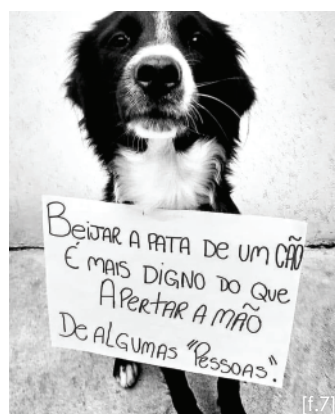 BEIJAR A PATA DE UM CÃO
É MAIS DIGNO DO QUE
APERTAR A MÃO
DE ALGUMAS "PESSOAS".
[f.7]